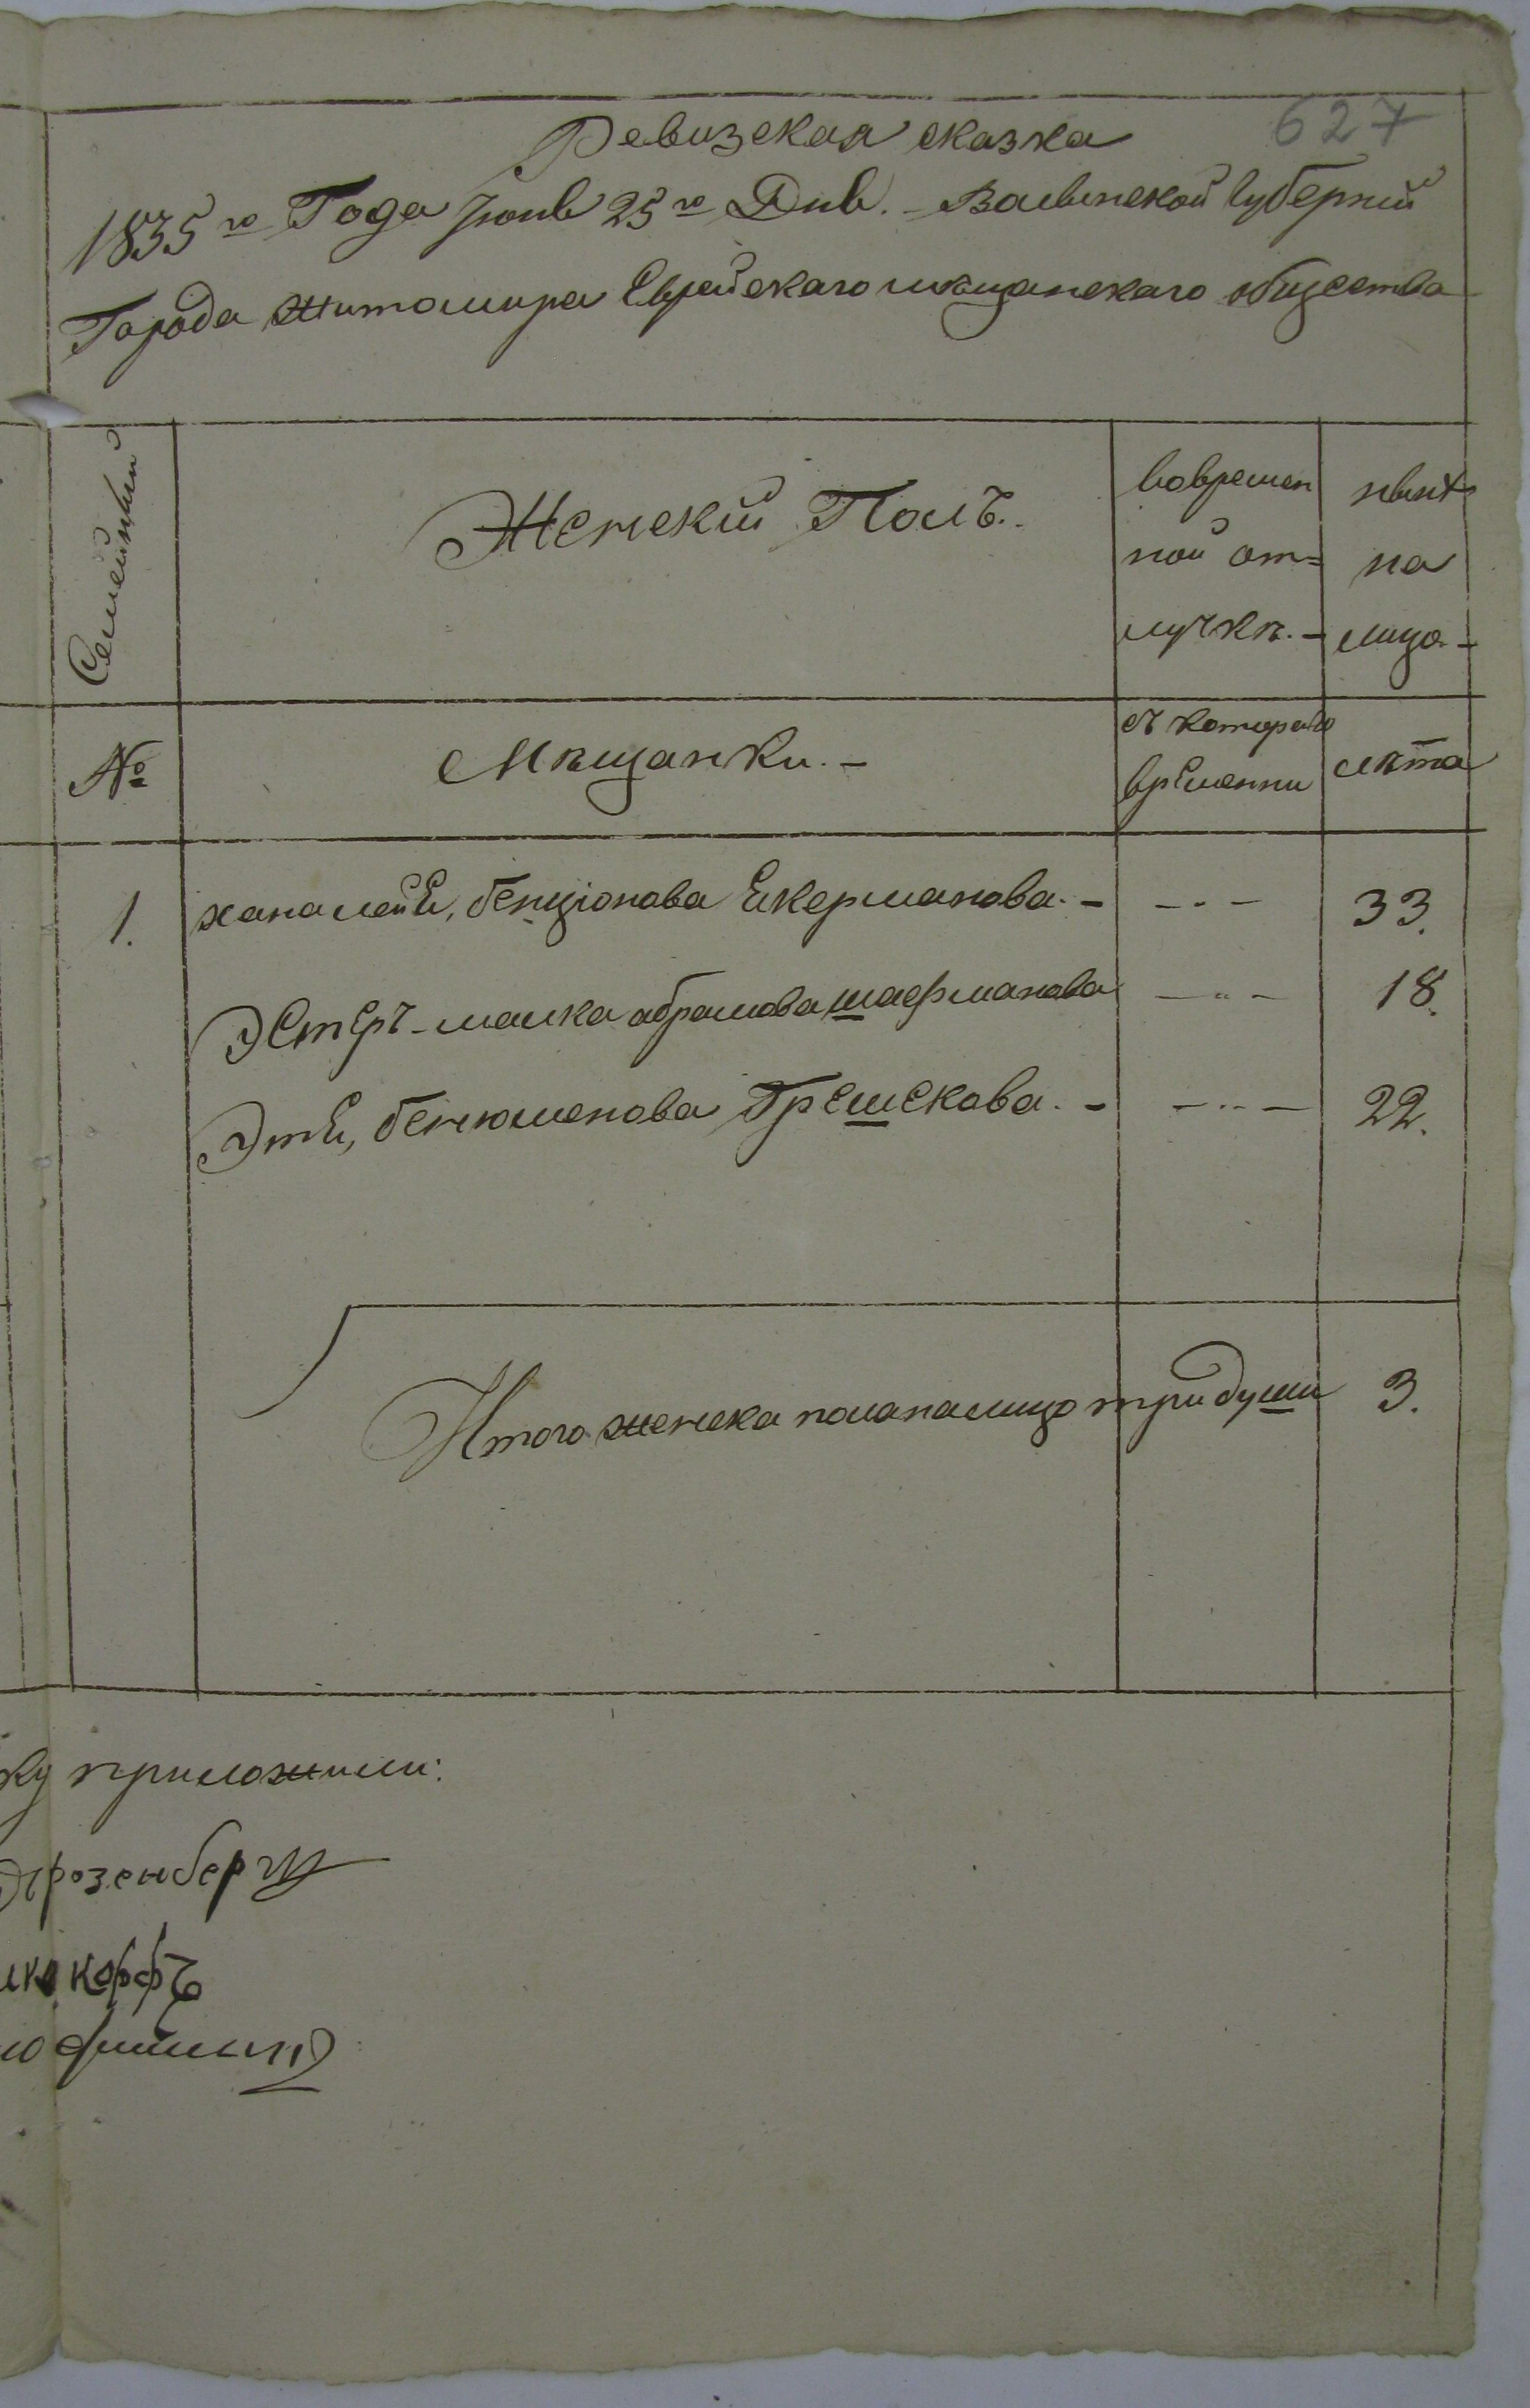 627
Ревизская сказка
1835 го Года Июнь 25 го Дня. - Валынской губерний
Города Житомира Еврейскаго мѣщанскаго общества
Семействы
Женскій Полъ.
вовремен
ной от=
лучкѣ. -
нынѣ
на
лицо -
№
Мѣщанки. -
съ котораго
времянни
лѣта
1. ханалея, бенціонова Екерманова. - - . - 33.
Эстеръ-малка абрамова шаефманова - " - 18.
Этя, бенюменова Грешскова. - - .. - 22.
Итого женска поланалицо три души 3.
ку приложили:
розенбергъ
корфъ